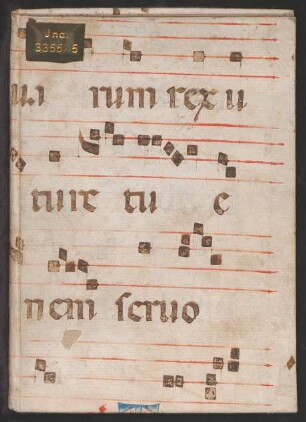 Jnc.
3355/5
rum rex u
ture tu e
nem seruo